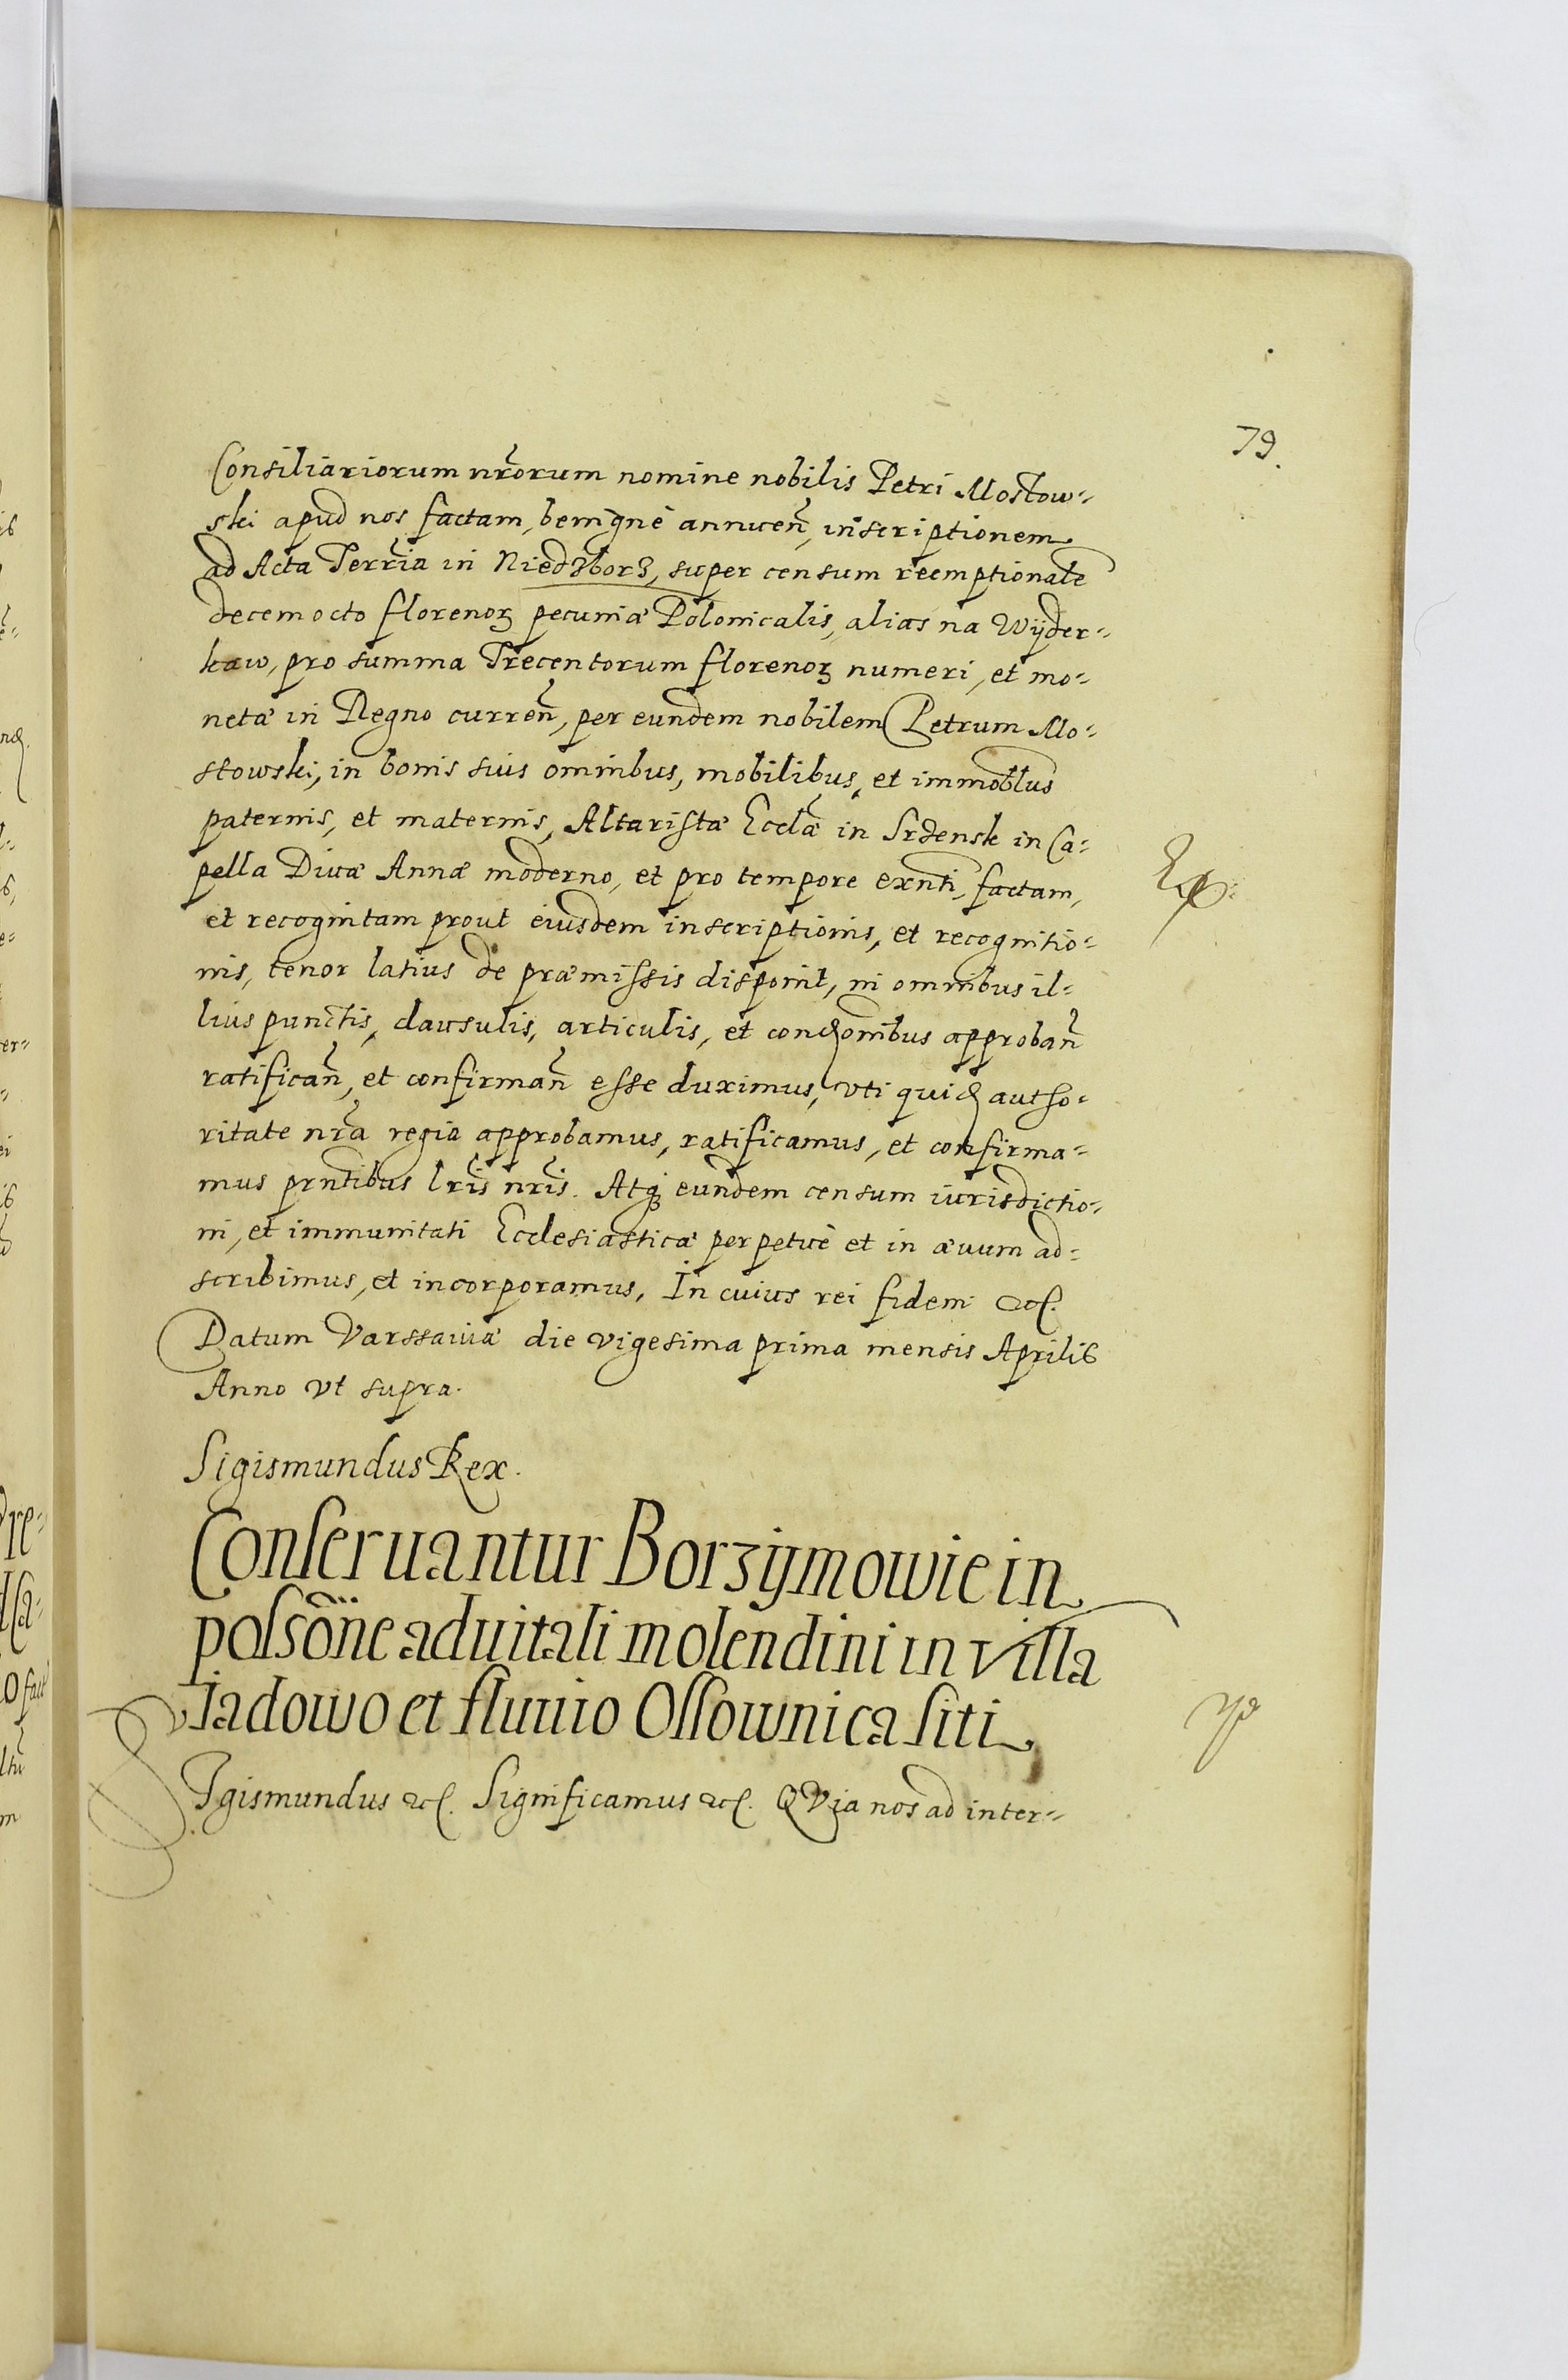 79.
Consiliariorum nr̃orum nomine nobilis Petri Mostow⸗
ski apud nos factam, benignè annuen̄, inscriptionem
ad Acta Terrr̃ia in Niedzborz, super censum reemptionale
decem octo florenoꝝ pecuniæ Polonicalis, alias na Wÿder⸗
kaw, pro summa Trecentorum florenoꝝ numeri, et mo⸗
netæ in Regno curren̄, per eundem nobilem Petrum Mo⸗
stowski, in bonis suis omnibus, mobilibus, et immobl̃us
paternis, et maternis, Altaristæ Eccl̃æ in Srdensk in Ca⸗
pella Diuæ Annæ moderno, et pro tempore exñti, factam,
et recognitam prout eiusdem inscriptionis, et recognitio⸗
nis, tenor latius de præmissis disponit, in omnibus il⸗
lius punctis, clausulis, articulis, et condonibus approban̄
ratifican̄, et confirman̄ esse duximus, vti quid autho⸗
ritate nr̃a regia approbamus, ratificamus, et confirma⸗
mus prñtibus lr̃is nr̃is. Atqꝫ eundem censum iurisdictio⸗
ni, et immunitati Ecclesiasticæ perpetuè et in æuum ad⸗
scribimus, et incorporamus, In cuius rei fidem etc.
Datum Varssauiæ die vigesima prima mensis Aprilis
Anno vt supra.
Sigismundus Rex.
Conseruantur Borzÿmowie in
possoñe aduitali molendini in villa
Jadowo et fluuio Ossownica siti
SIgismundus etc. Significamus etc. QVia nos ad inter⸗